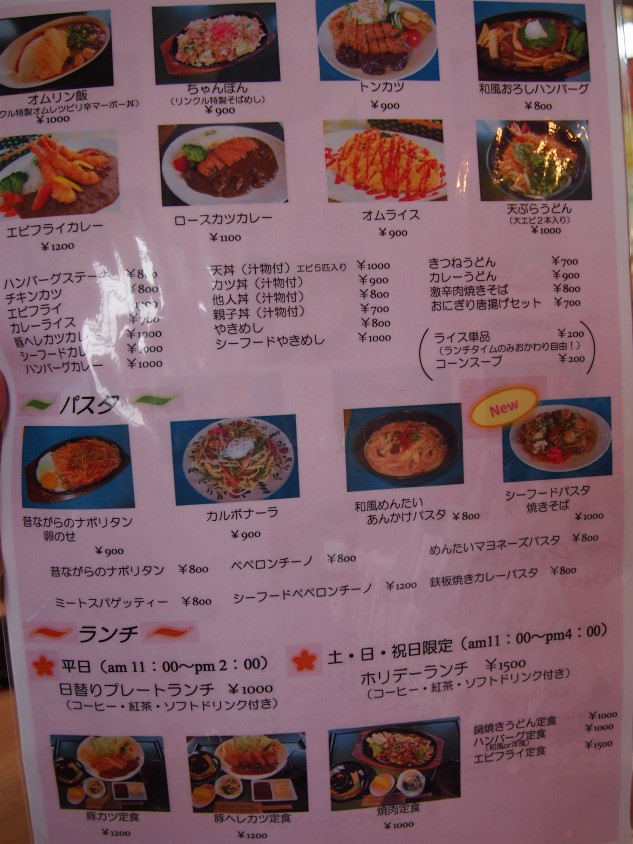 オムリン飯
クル特製オムレツピリ辛マーボー丼)
¥1000
ちゃんぽん
(リンクル特製そばめし)
¥900
トンカツ
¥900
和風おろしハンバーグ
¥800
エビフライカレー
¥1200
ロースカツカレー
¥1100
オムライス
¥900
天ぷらうどん
(大エビ2本入り)
¥1000
ハンバーグステーキ ¥800
チキンカツ ¥800
エビフライ
カレーライス ¥700
豚ヘレカツカレー ¥1000
シーフードカレー ¥1000
ハンバーグカレー ¥1000
天丼(汁物付)エビ5匹入り ¥1000
カツ丼(汁物付) ¥900
他人丼(汁物付) ¥800
親子丼(汁物付) ¥700
やきめし ¥800
シーフードやきめし ¥1000
きつねうどん ¥700
カレーうどん ¥900
激辛肉焼きそば ¥800
おにぎり唐揚げセット ¥700
ライス単品 ¥200
(ランチタイムのみおかわり自由!)
コーンスープ ¥200
パスタ
New
昔ながらのナポリタン
卵のせ
¥900
カルボナーラ
¥900
和風めんたい
あんかけパスタ ¥800
シーフードパスタ
焼きそば
¥1000
昔ながらのナポリタン ¥800
ペペロンチーノ ¥800
めんたいマヨネーズパスタ ¥800
ミートスパゲッティー ¥800
シーフードペペロンチーノ ¥1200
鉄板焼きカレーパスタ ¥800
ランチ
平日(am 11:00〜pm 2:00)
日替りプレートランチ ¥1000
(コーヒー・紅茶・ソフトドリンク付き)
土・日・祝日限定(am11:00〜pm4:00)
ホリデーランチ ¥1500
(コーヒー・紅茶・ソフトドリンク付き)
豚カツ定食
¥1200
豚ヘレカツ定食
¥1200
焼肉定食
¥1000
鍋焼きうどん定食 ¥1000
ハンバーグ定食 ¥1000
(和風or洋風)
エビフライ定食 ¥1500